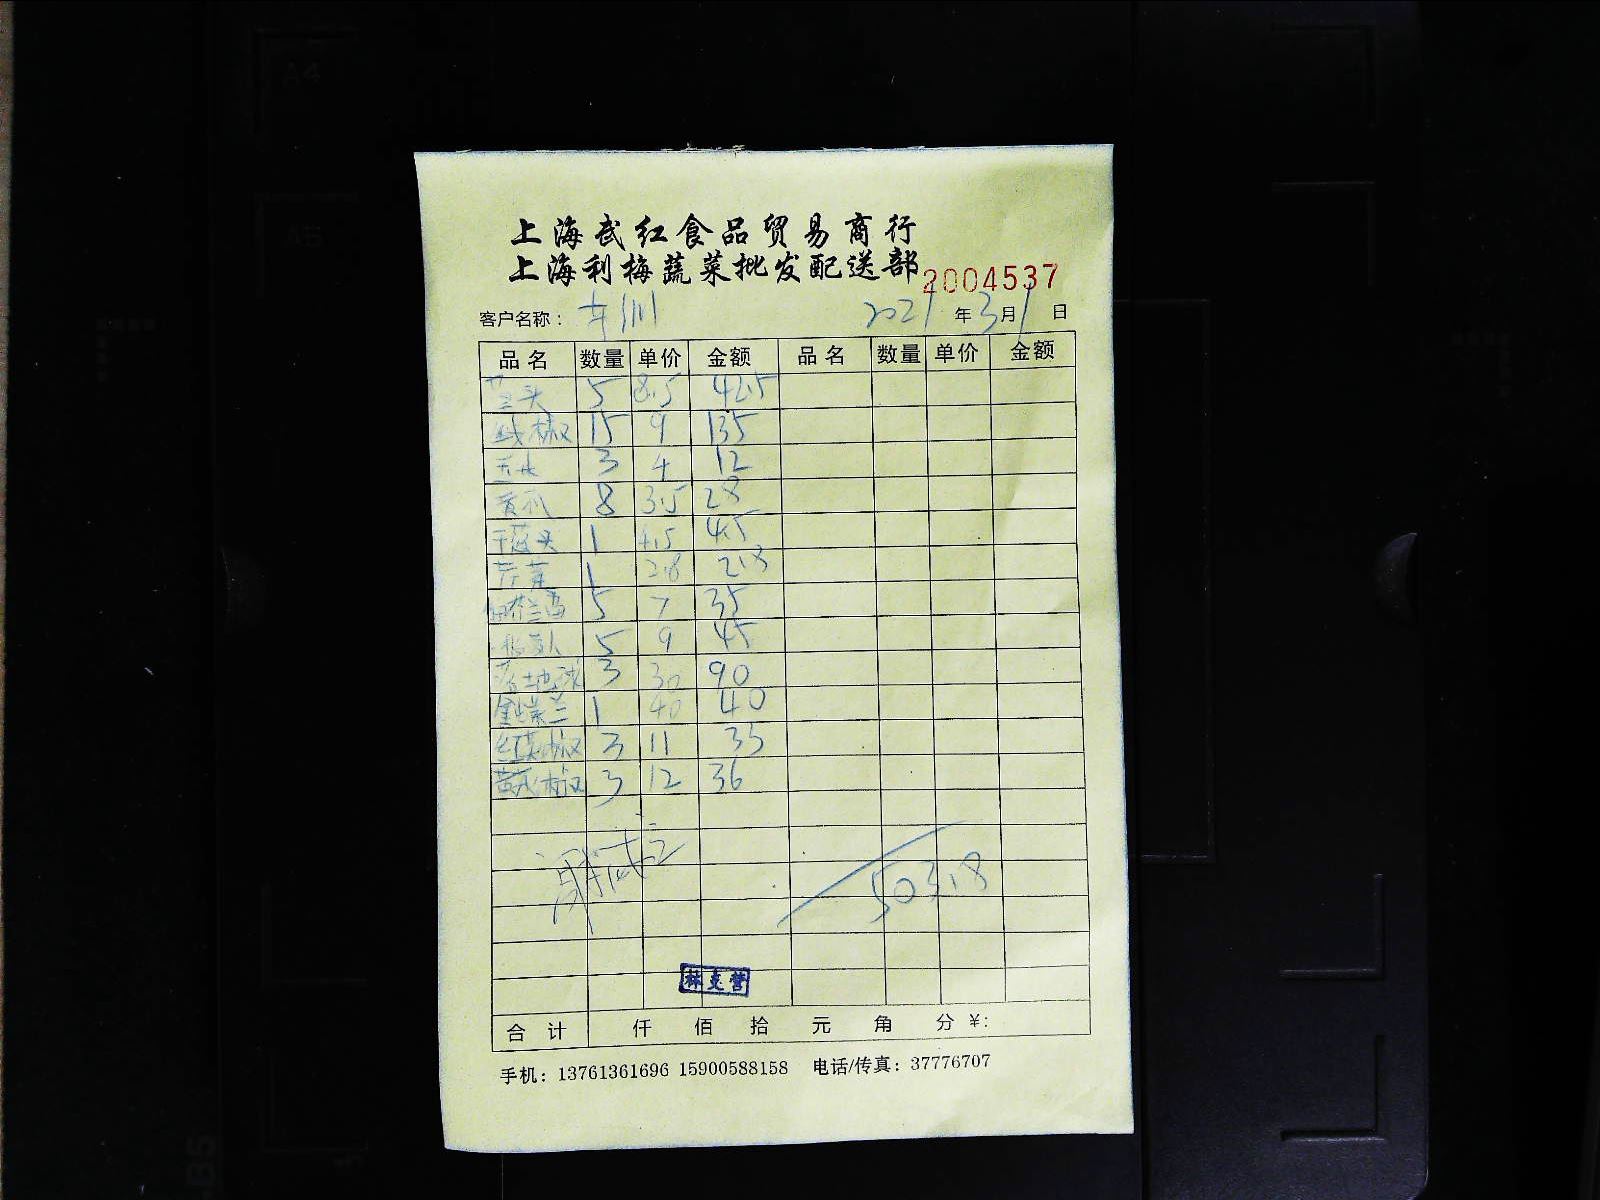 上海武红食品贸易商行
上海利梅蔬菜批发配送部 2004537
客户名称： 2021年3月1日
品名 数量 单价 金额 品名 数量 单价 金额
5 8.5 42.5
线椒 15 9 135
3 4 12
黄瓜 8 3.5 28
干葱头 1 4.5 4.5
芹菜 1 2.8 2.8
西兰苔 5 7 35
5 9 45
3 30 90
1 40 40
红美椒 3 11 33
黄美椒 3 12 36
503.8
林克营
合计 仟 佰 拾 元 角 分 ¥:
手机：13761361696 15900588158 电话/传真：37776707
A4
A5
B5